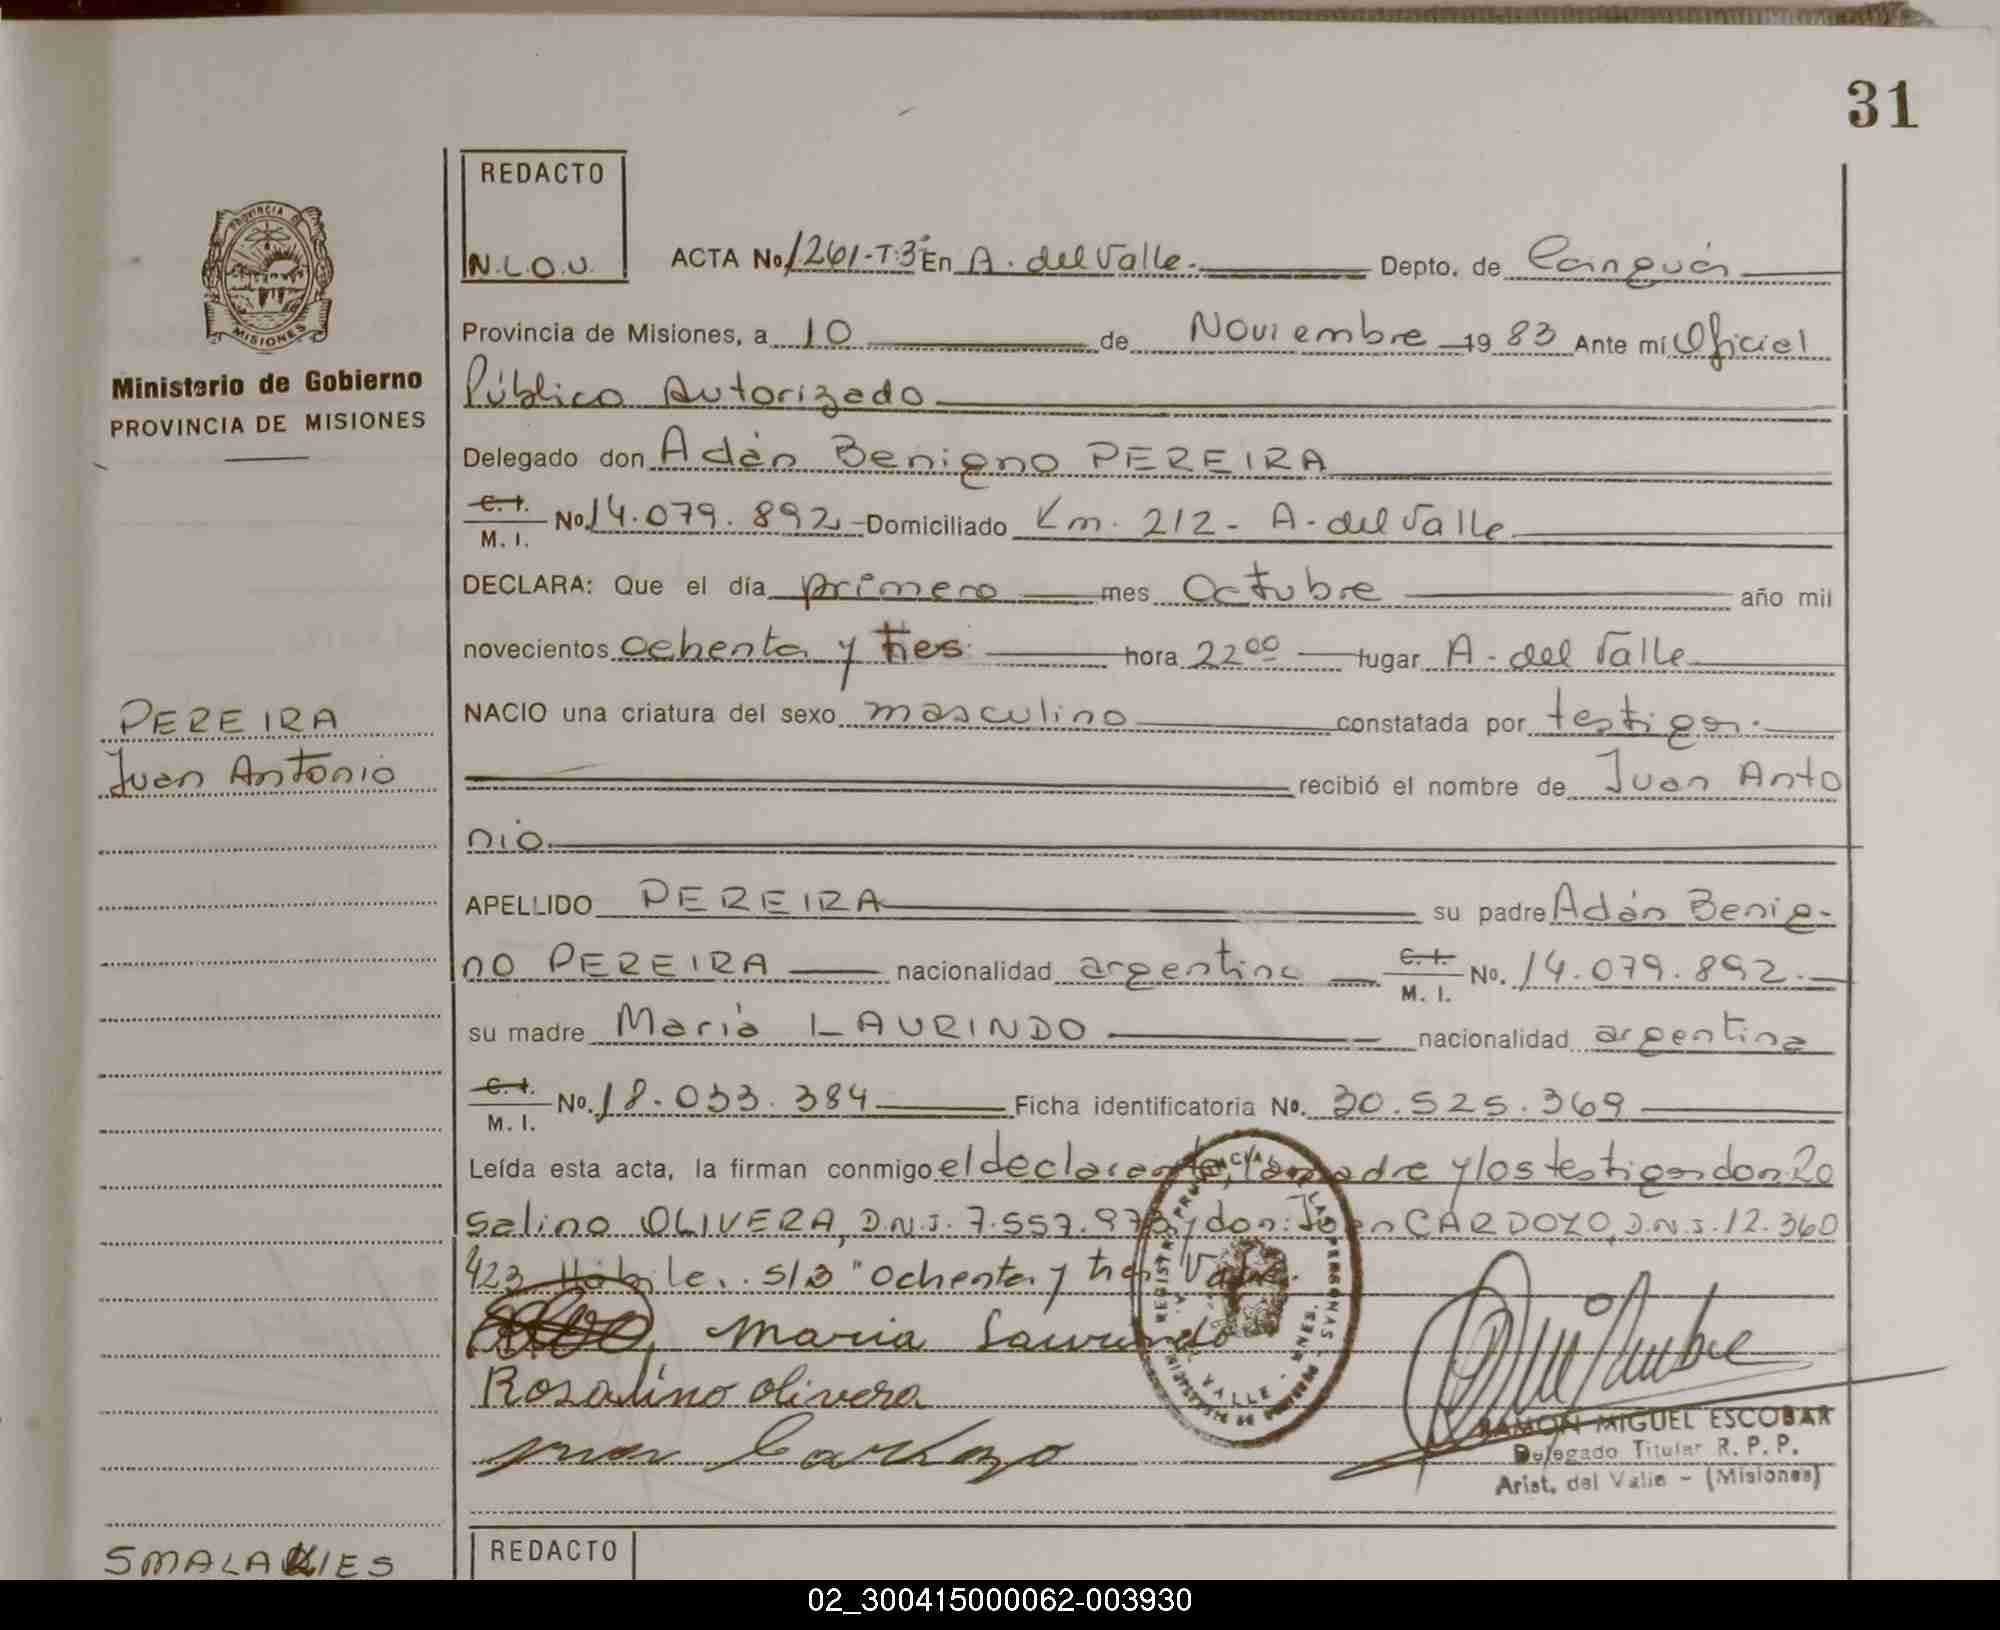 31
REDACTO
N.L.O.U.
PROVINCIA DE
MISIONES
Ministerio de Gobierno
PROVINCIA DE MISIONES
ACTA No 1261-T.3º En A. del Valle. Depto. de Cainguás
Provincia de Misiones, a 10 de Noviembre 1983 Ante mí Oficial
Público Autorizado
Delegado don Adán Benigno PEREIRA
C. I. M. I. No 14.079.892 Domiciliado Km. 212 - A. del Valle
DECLARA: Que el día primero mes Octubre año mil
novecientos ochenta y tres hora 22 00 lugar A. del Valle
NACIO una criatura del sexo masculino constatada por testigos.
recibió el nombre de Juan Anto
nio.
PEREIRA
Juan Antonio
APELLIDO PEREIRA su padre Adán Benig-
no PEREIRA nacionalidad argentina C. I. M. I. No. 14.079.892.
su madre María LAURINDO nacionalidad argentina
C. I. M. I. No. 18.033.384 Ficha identificatoria No. 30.525.369
Leída esta acta, la firman conmigo el declarante, la madre y los testigos don Ro
salino OLIVERA, D.N.I. 7.557.978 y don: Juan CARDOZO, D.N.I. 12.360
423 Hábile.. S/B "ochenta y tres" Vale.
Maria Laurindo
Rosalino olivera
Juan Cardozo
REGISTRO PROVINCIAL DE LAS PERSONAS
VALLE - MNES.
RAMON MIGUEL ESCOBAR
Delegado Titular R. P. P.
Arist. del Valle - (Misiones)
SMALAKIES
REDACTO
02_300415000062-003930